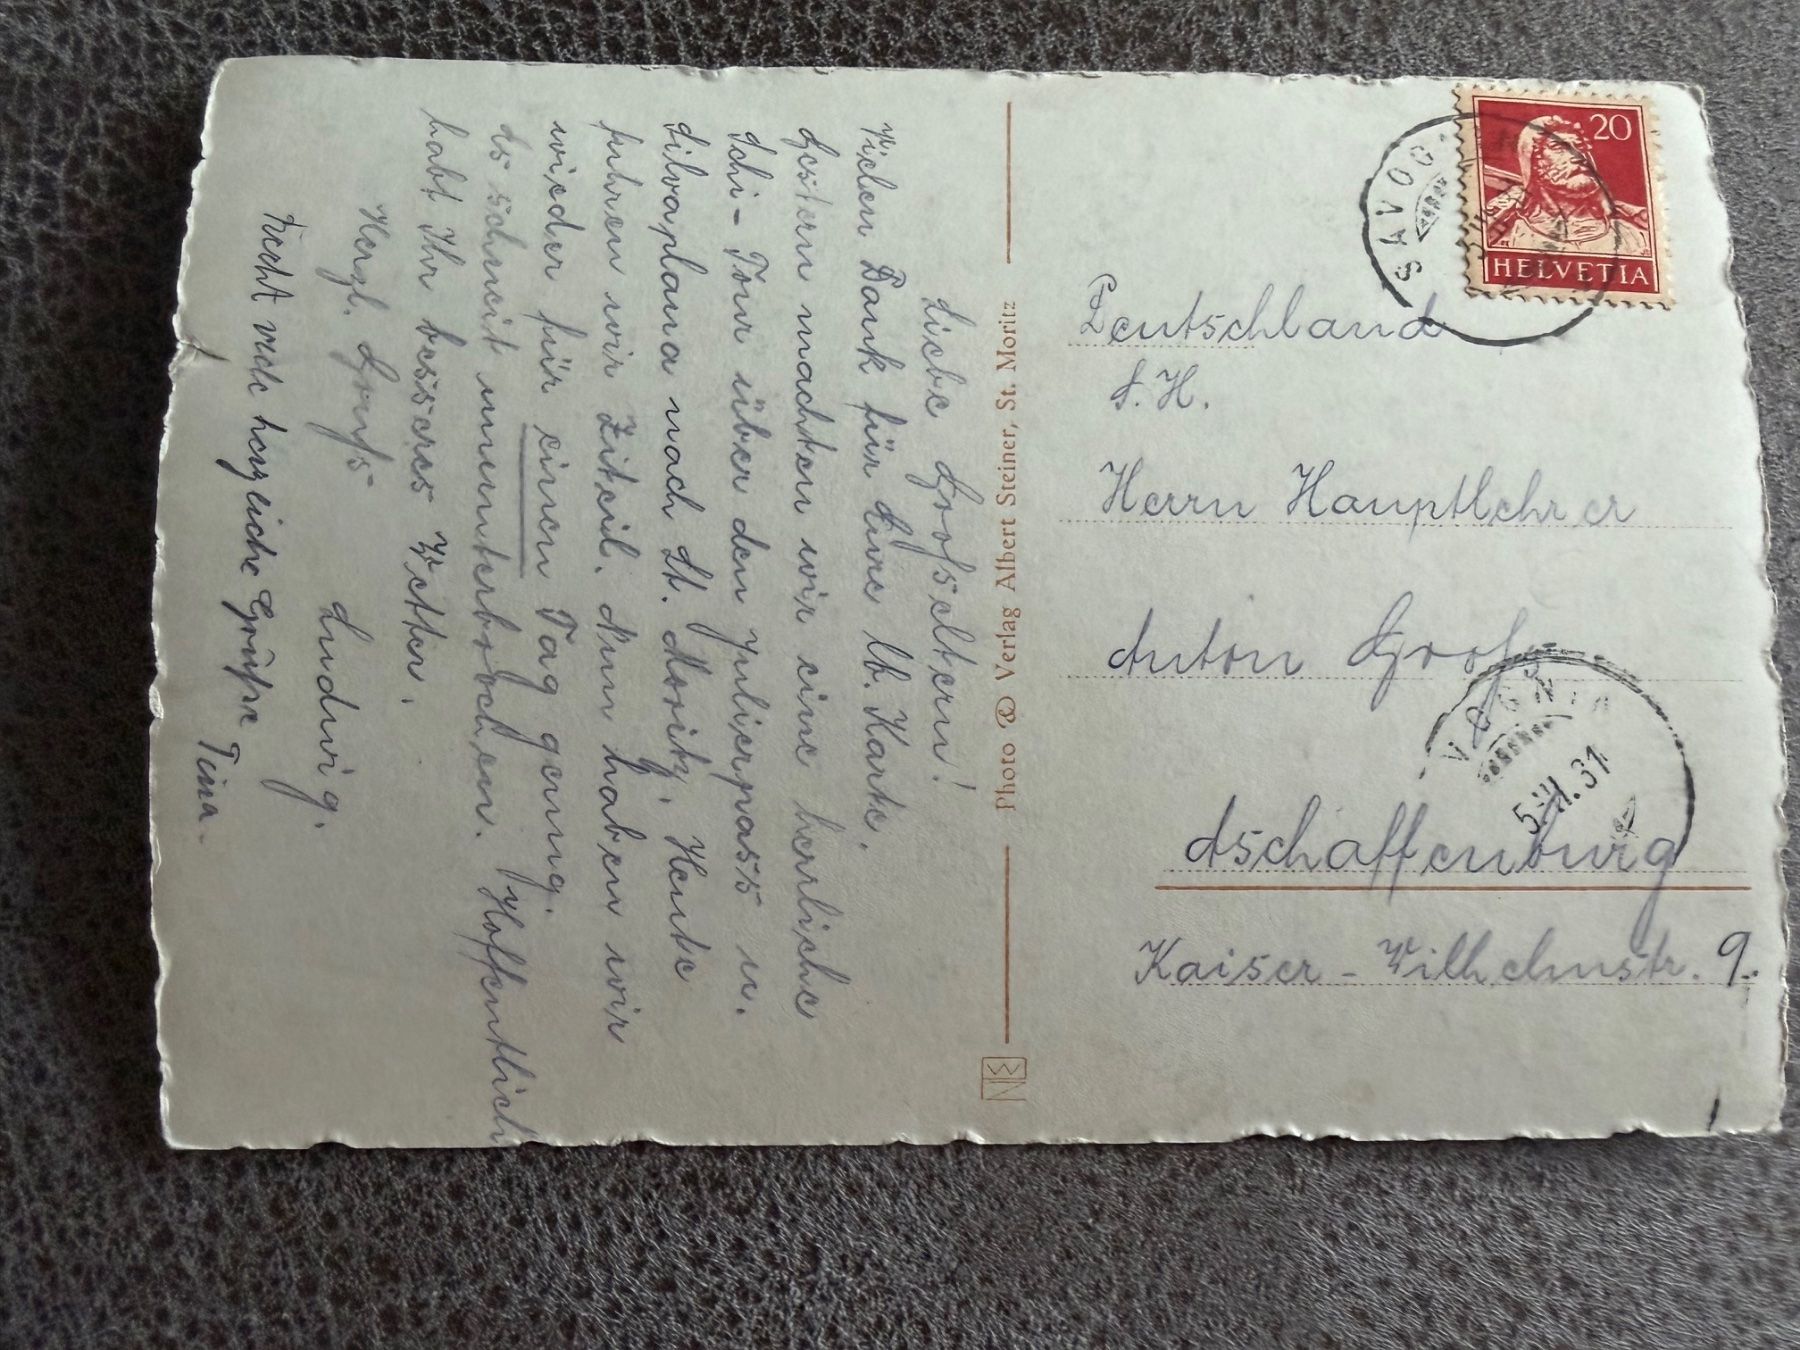 Liebe Großeltern!
Vielen Dank für Eure lb. Karte.
Gestern machten wir eine herrliche
Schi-Tour über den Julierpass u.
Silvaplana nach St. Moritz. Heute
fuhren wir Ziteil. Nun haben wir
wieder für einen Tag genug.
Es schneit ununterbrochen. Hoffentlich
habt Ihr besseres Wetter.
Herzl. Gruß
Ludwig.
Recht viele herzliche Grüße
Tina.
Photo © Verlag Albert Steiner, St. Moritz
20
HELVETIA
SAVOG
Deutschland
S. H.
Herrn Hauptlehrer
Anton Groß
SAVOGNIN
5.III.31
Aschaffenburg
Kaiser-Wilhelmstr. 9.